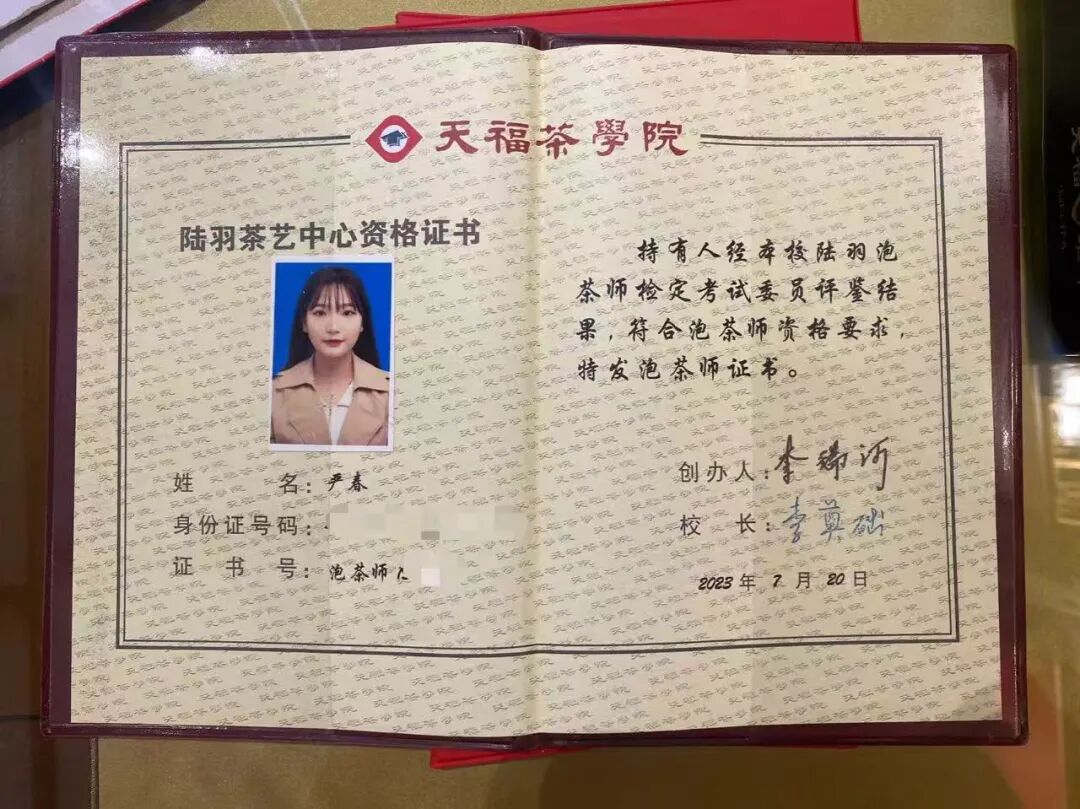 天福茶學院
陆羽茶艺中心资格证书
姓 名：严春
身份证号码：
证 书 号：泡茶师
持有人经本校陆羽泡
茶师检定考试委员评鉴结
果，符合泡茶师资格要求，
特发泡茶师证书。
创办人：李瑞河
校 长：李萛础
2023 年 7 月 20 日